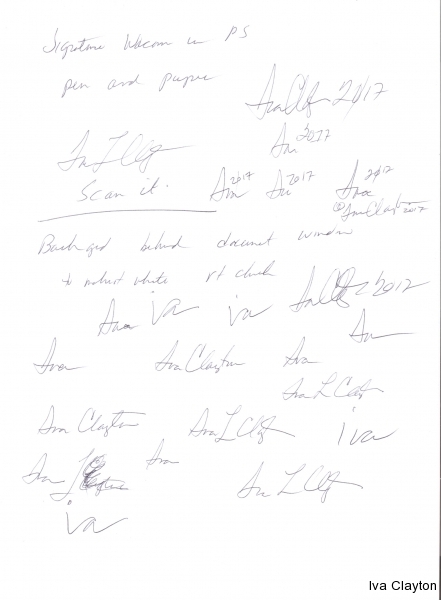 Signature Wacom in PS
pen and paper
Iva Clay 2017
Iva 2017
Iva L Clay
Scan it.
Iva 2017 Iva 2017 Iva 2017
©Iva Clayton 2017
Background behind document window
to not white rt click
Iva Clay 2017
Iva iva iva
Iva
Iva Iva Clayton Iva
Iva L Clayton
Iva Clayton Iva L Clay iva
Iva Iva
Iva L Clay
iva
Iva Clayton